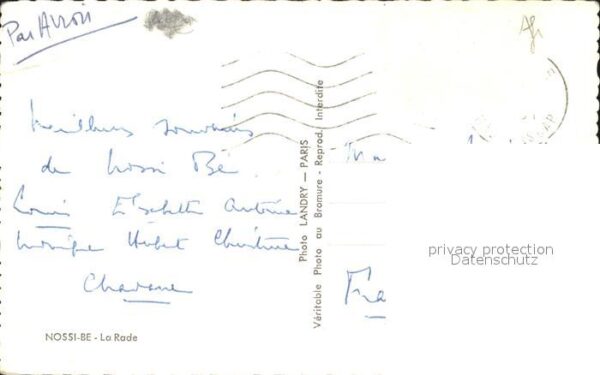 Par Avion
Meilleurs souvenirs
de Nossi Bé.
Louis Elisabeth Antoine
Monique Hubert Christine
NOSSI-BE - La Rade
Photo LANDRY — PARIS
Véritable Photo au Bromure - Reprod. Interdite
Ma
Fra
privacy protection
Datenschutz